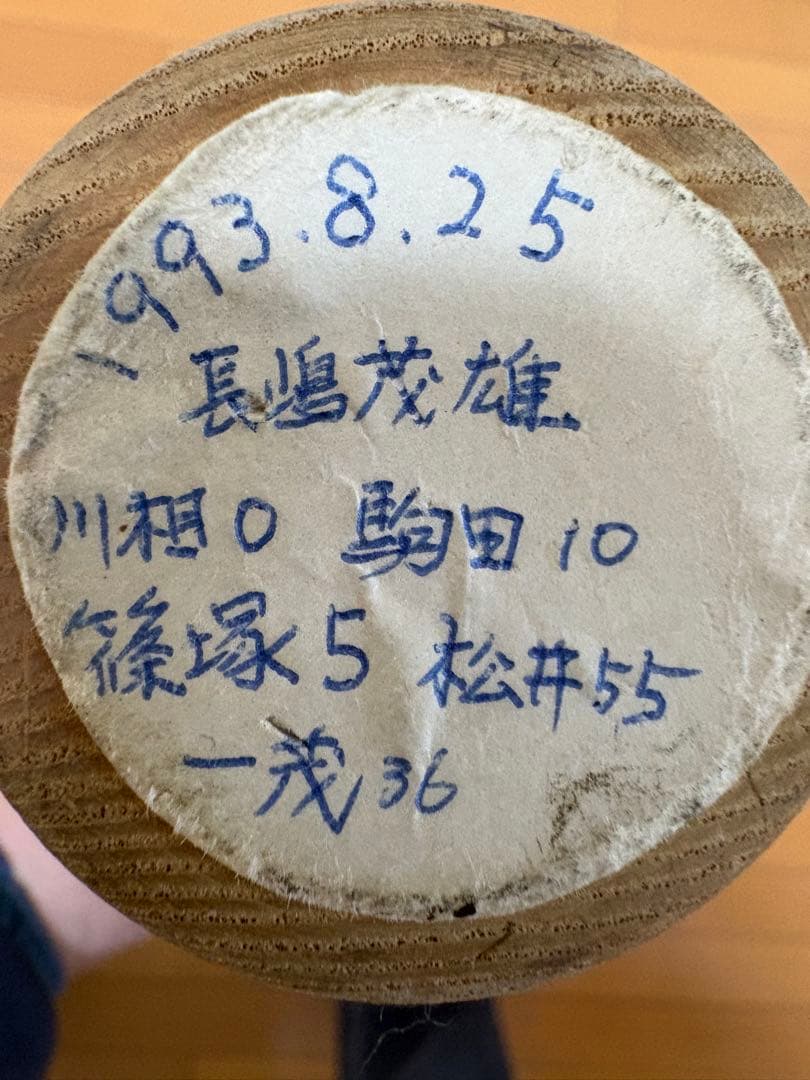 1993.8.25
長嶋茂雄
川相0 駒田10
篠塚5 松井55
一茂36